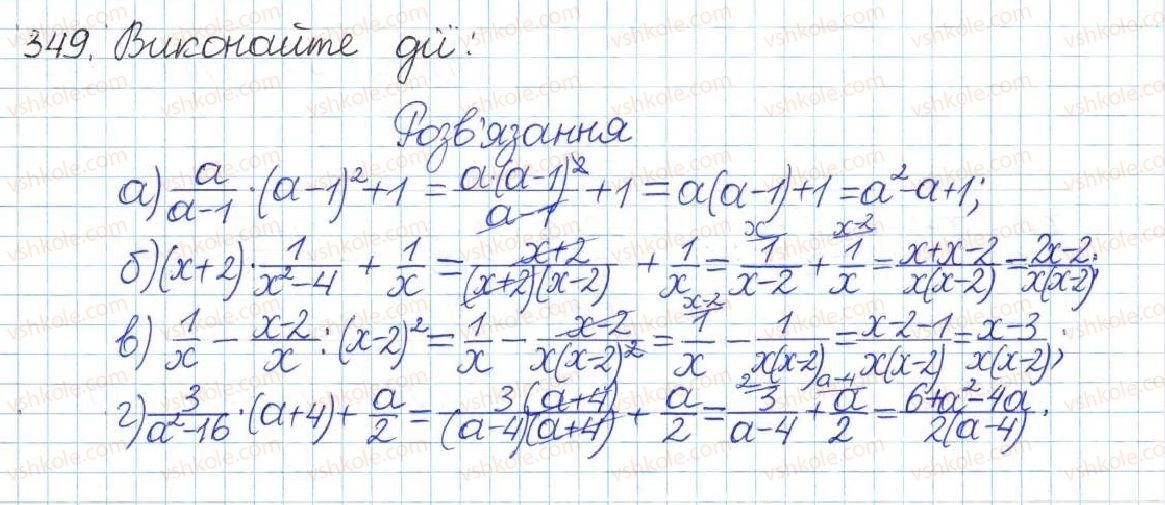 349. Виконайте дії:
Розв'язання
а) a/(a-1) · (a-1)² + 1 = a·(a-1)²/(a-1) + 1 = a(a-1)+1 = a²-a+1;
б) (x+2) · 1/(x²-4) + 1/x = (x+2)/((x+2)(x-2)) + 1/x = 1/(x-2) + 1/x = (x+x-2)/(x(x-2)) = (2x-2)/(x(x-2));
в) 1/x - (x-2)/x : (x-2)² = 1/x - (x-2)/(x(x-2)²) = 1/x - 1/(x(x-2)) = (x-2-1)/(x(x-2)) = (x-3)/(x(x-2));
г) 3/(a²-16) · (a+4) + a/2 = 3(a+4)/((a-4)(a+4)) + a/2 = 3/(a-4) + a/2 = (6+a²-4a)/(2(a-4)).